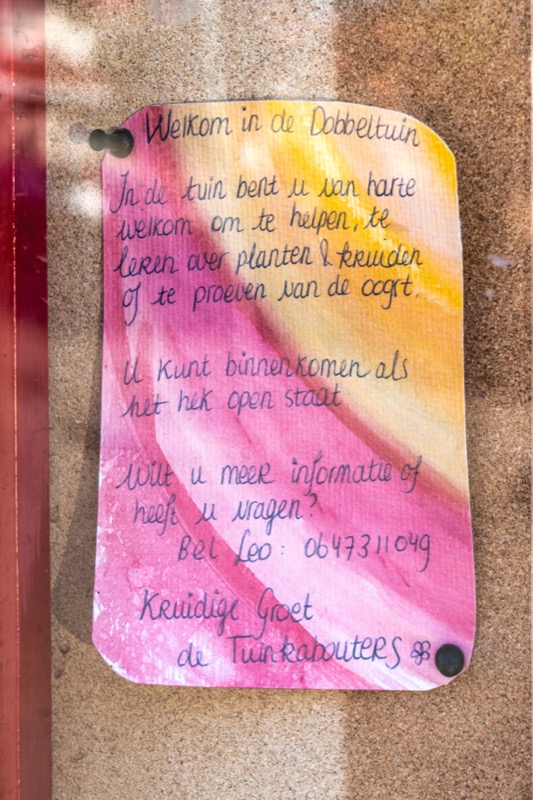 Welkom in de Dobbeltuin
In de tuin bent u van harte
welkom om te helpen, te
leren over planten & kruiden
of te proeven van de oogst.
U kunt binnenkomen als
het hek open staat
Wilt u meer informatie of
heeft u vragen?
Bel Leo: 0647311049
Kruidige Groet
de Tuinkabouters